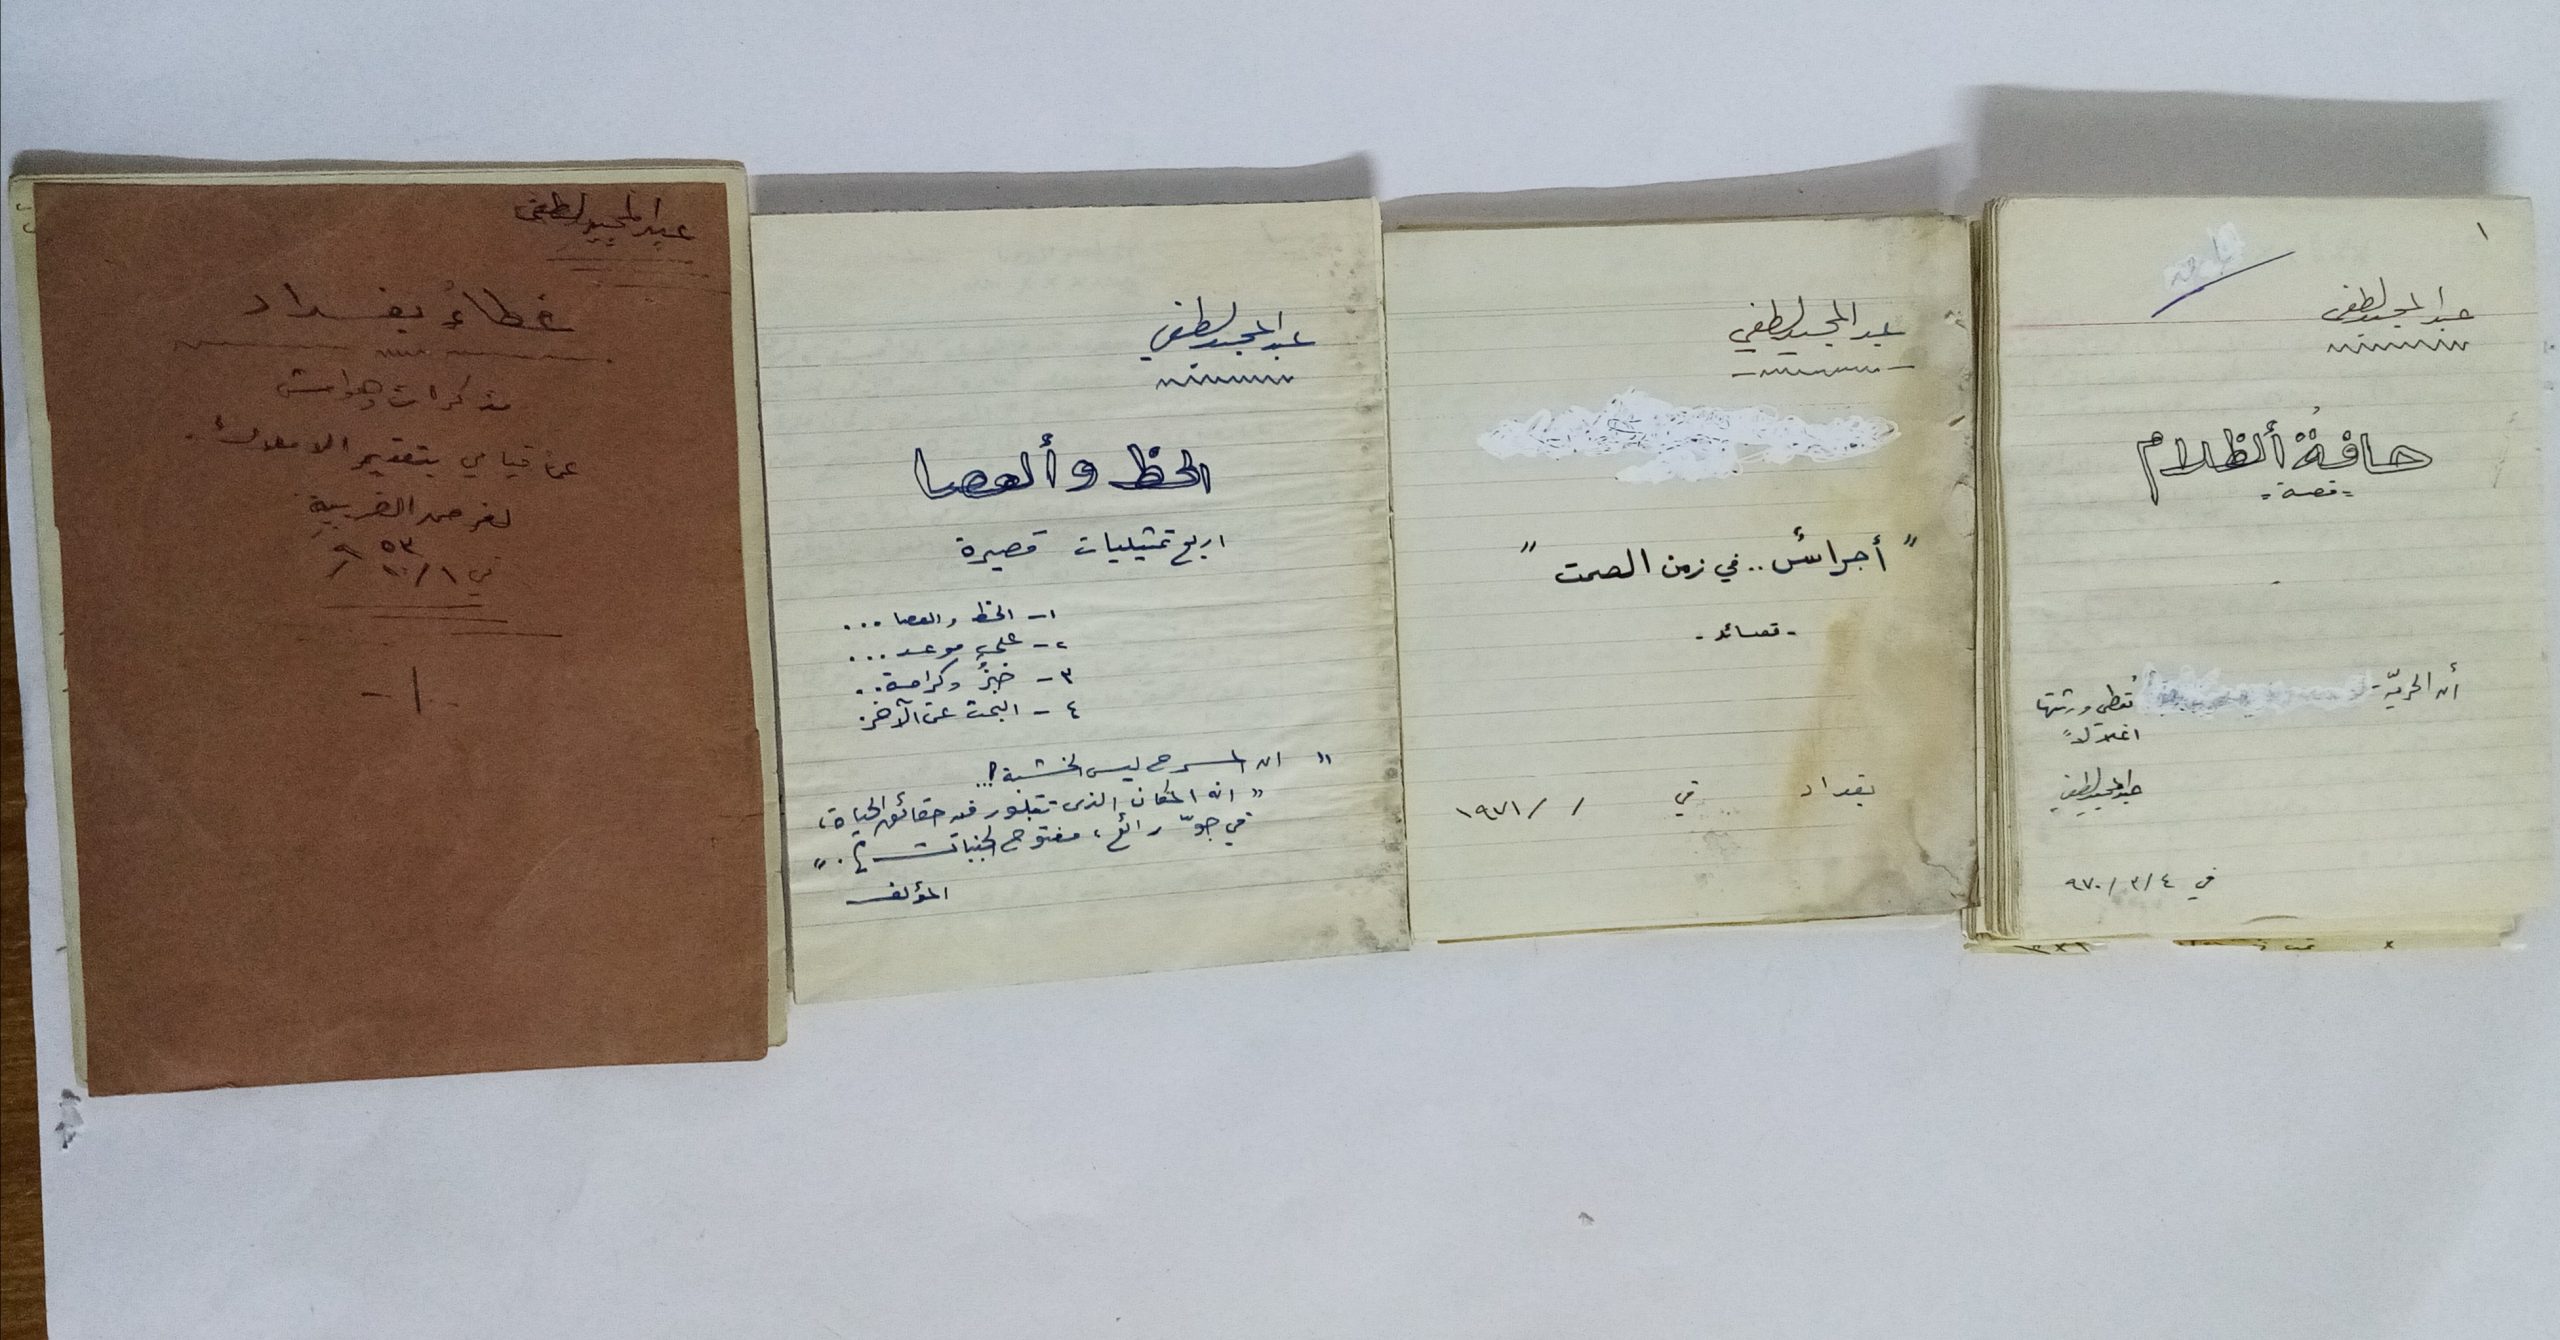 عبد المجيد لطفي
غطاء بغداد
مذكرات وهوامش
عن قيامي بتقدير الاملاك
لغرض الضريبة
في ١/١٠/٩٥٣
- ١ -
عبد المجيد لطفي
الحظ وألعصا
اربع تمثيليات قصيرة
١- الحظ والعصا ...
٢- على موعد ...
٣- خبزٌ وكرامة..
٤- البحث عن الآخر.
" ان المسرح ليس الخشبة!...
" انه المكان الذي تتبلور فيه حقائق الحياة،
في جوّ رائع، مفتوح الجنبات . "
المؤلف
عبد المجيد لطفي
" أجراسٌ .. في زمن الصمت "
- قصائد -
بغداد في / / ١٩٧١
١
عبد المجيد لطفي
حافةُ ألظلام
- قصة -
أن الحريّة تُعطي ورثتها
اغلالاً
عبد المجيد لطفي
في ٤/٣/٩٧٠